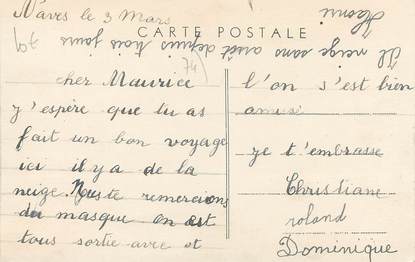 Naves le 3 Mars
CARTE POSTALE
79
74)
cher Maurice
j'espère que tu as
fait un bon voyage
ici il y a de la
neige. Nous te remercions
du masque on est
tous sortie avec et
l'on s'est bien
amusé
je t'embrasse
Christiane
roland
Dominique
Il neige sans arrêt depuis trois jours